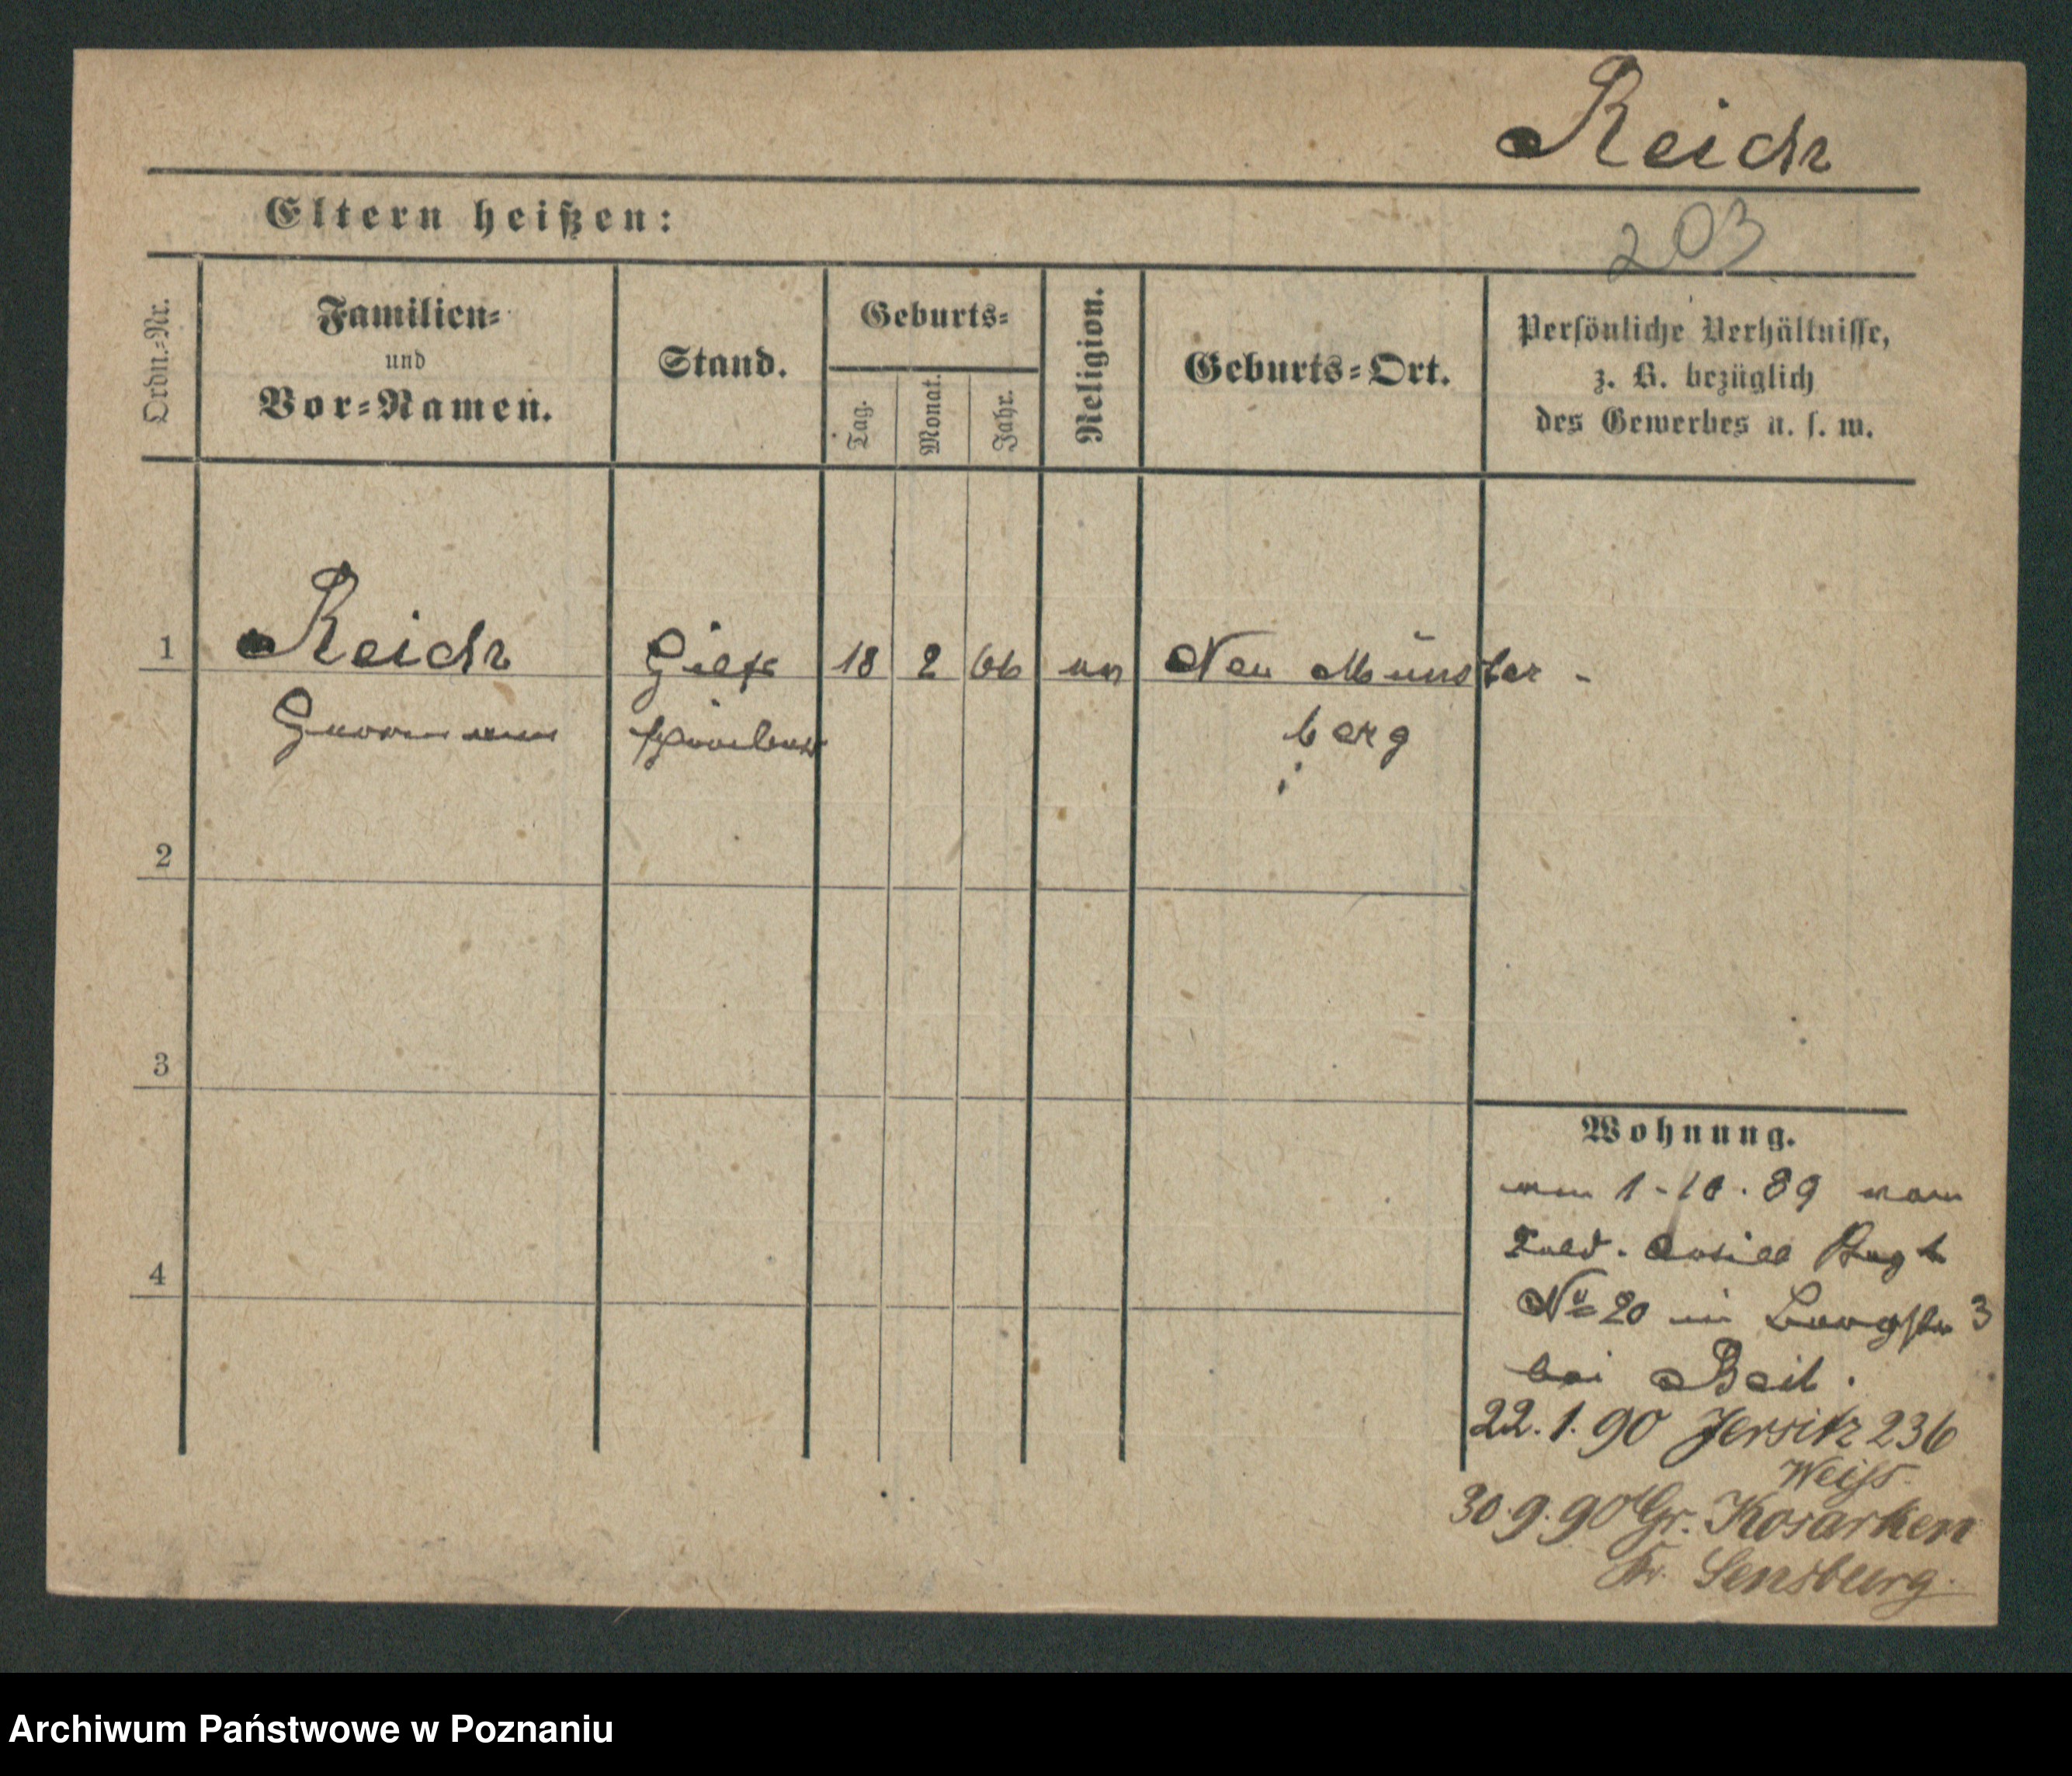 Reich
Eltern heißen:
203
Ordn.-Nr.
Familien-
und
Vor-Namen.
Stand.
Geburts-
Tag.
Monat.
Jahr.
Religion.
Geburts-Ort.
Persönliche Verhältnisse,
z. B. bezüglich
des Gewerbes u. s. w.
1 Reich 18 2 66 Neu Münster-
Hermann berg
2
3
4
Wohnung.
1.10.89 vom
Feld.
No 20 in 3
bei Beil.
22.1.90 Jersitz 236
Weiss.
30.9.90 Gr. Kosarken
Kr. Sensburg.
Archiwum Państwowe w Poznaniu